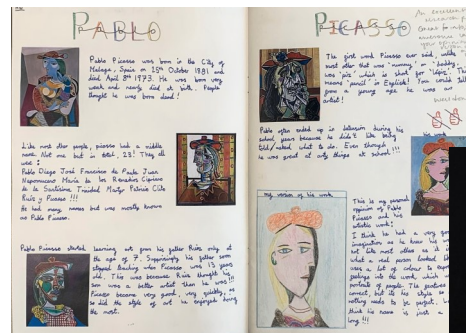 PABLO
Pablo Picasso was born in the City of
Malaga, Spain on 25th October 1881 and
died April 8th 1973. He was born very
weak and nearly died at birth. People
thought he was born dead!
Like most other people, picasso had a middle
name. Not one but in total, 23! They all
are:
Pablo Diego José Francisco de Paula Juan
Nepomuceno María de los Remedios Cipriano
de la Santísima Trinidad Martyr Patricio Clito
Ruíz y Picasso !!!
He had many names but was mostly known
as Pablo Picasso.
Pablo Picasso started learning art from his father Ruiz only at
the age of 7. Suprisingly his father soon
stopped teaching when Picasso was 13 years
old. This was because Ruiz thought his
son was a better artist than he was!!!
Picasso became very good, very quickly, as
so did the style of art he enjoyed doing
the most.
PICASSO
The first word Picasso ever said, unlike
most other that was "mummy" or "daddy",
was 'piz' which is short for 'lápiz'. This
means 'pencil' in English! You could tell
from a young age he was an
artist!
Pablo often ended up in detension during his
school years because he didn't like being
told/asked what to do. Even though
he was great at arty things at school!!!
his work
my version of his work
This is my personal
oppinion of Pablo
Picasso and his
artistic work!
I think he had a very good
imagination as he knew his
but like most others as it
what a real person looked like
uses a lot of colour to express
feelings into the work, which
portraits of people. The features
correct, but it's his style so
nothing needs to be perfect. I
think his name is just a
long !!!